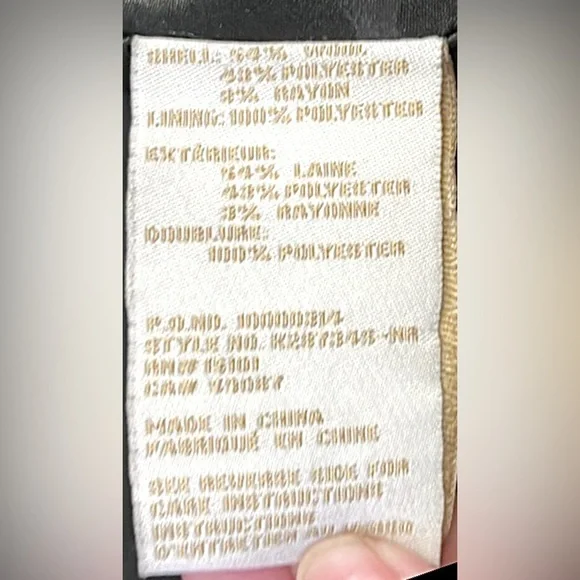 SHELL: 54% WOOL
43% POLYESTER
3% RAYON
LINING: 100% POLYESTER
EXTÉRIEUR:
54% LAINE
43% POLYESTER
3% RAYONNE
DOUBLURE:
100% POLYESTER
P.O.NO.
STYLE NO.
RN#
CA#
MADE IN CHINA
FABRIQUÉ EN CHINE
SEE REVERSE SIDE FOR
CARE INSTRUCTIONS
INSTRUCTIONS
D'ENTRETIEN AU VERSO